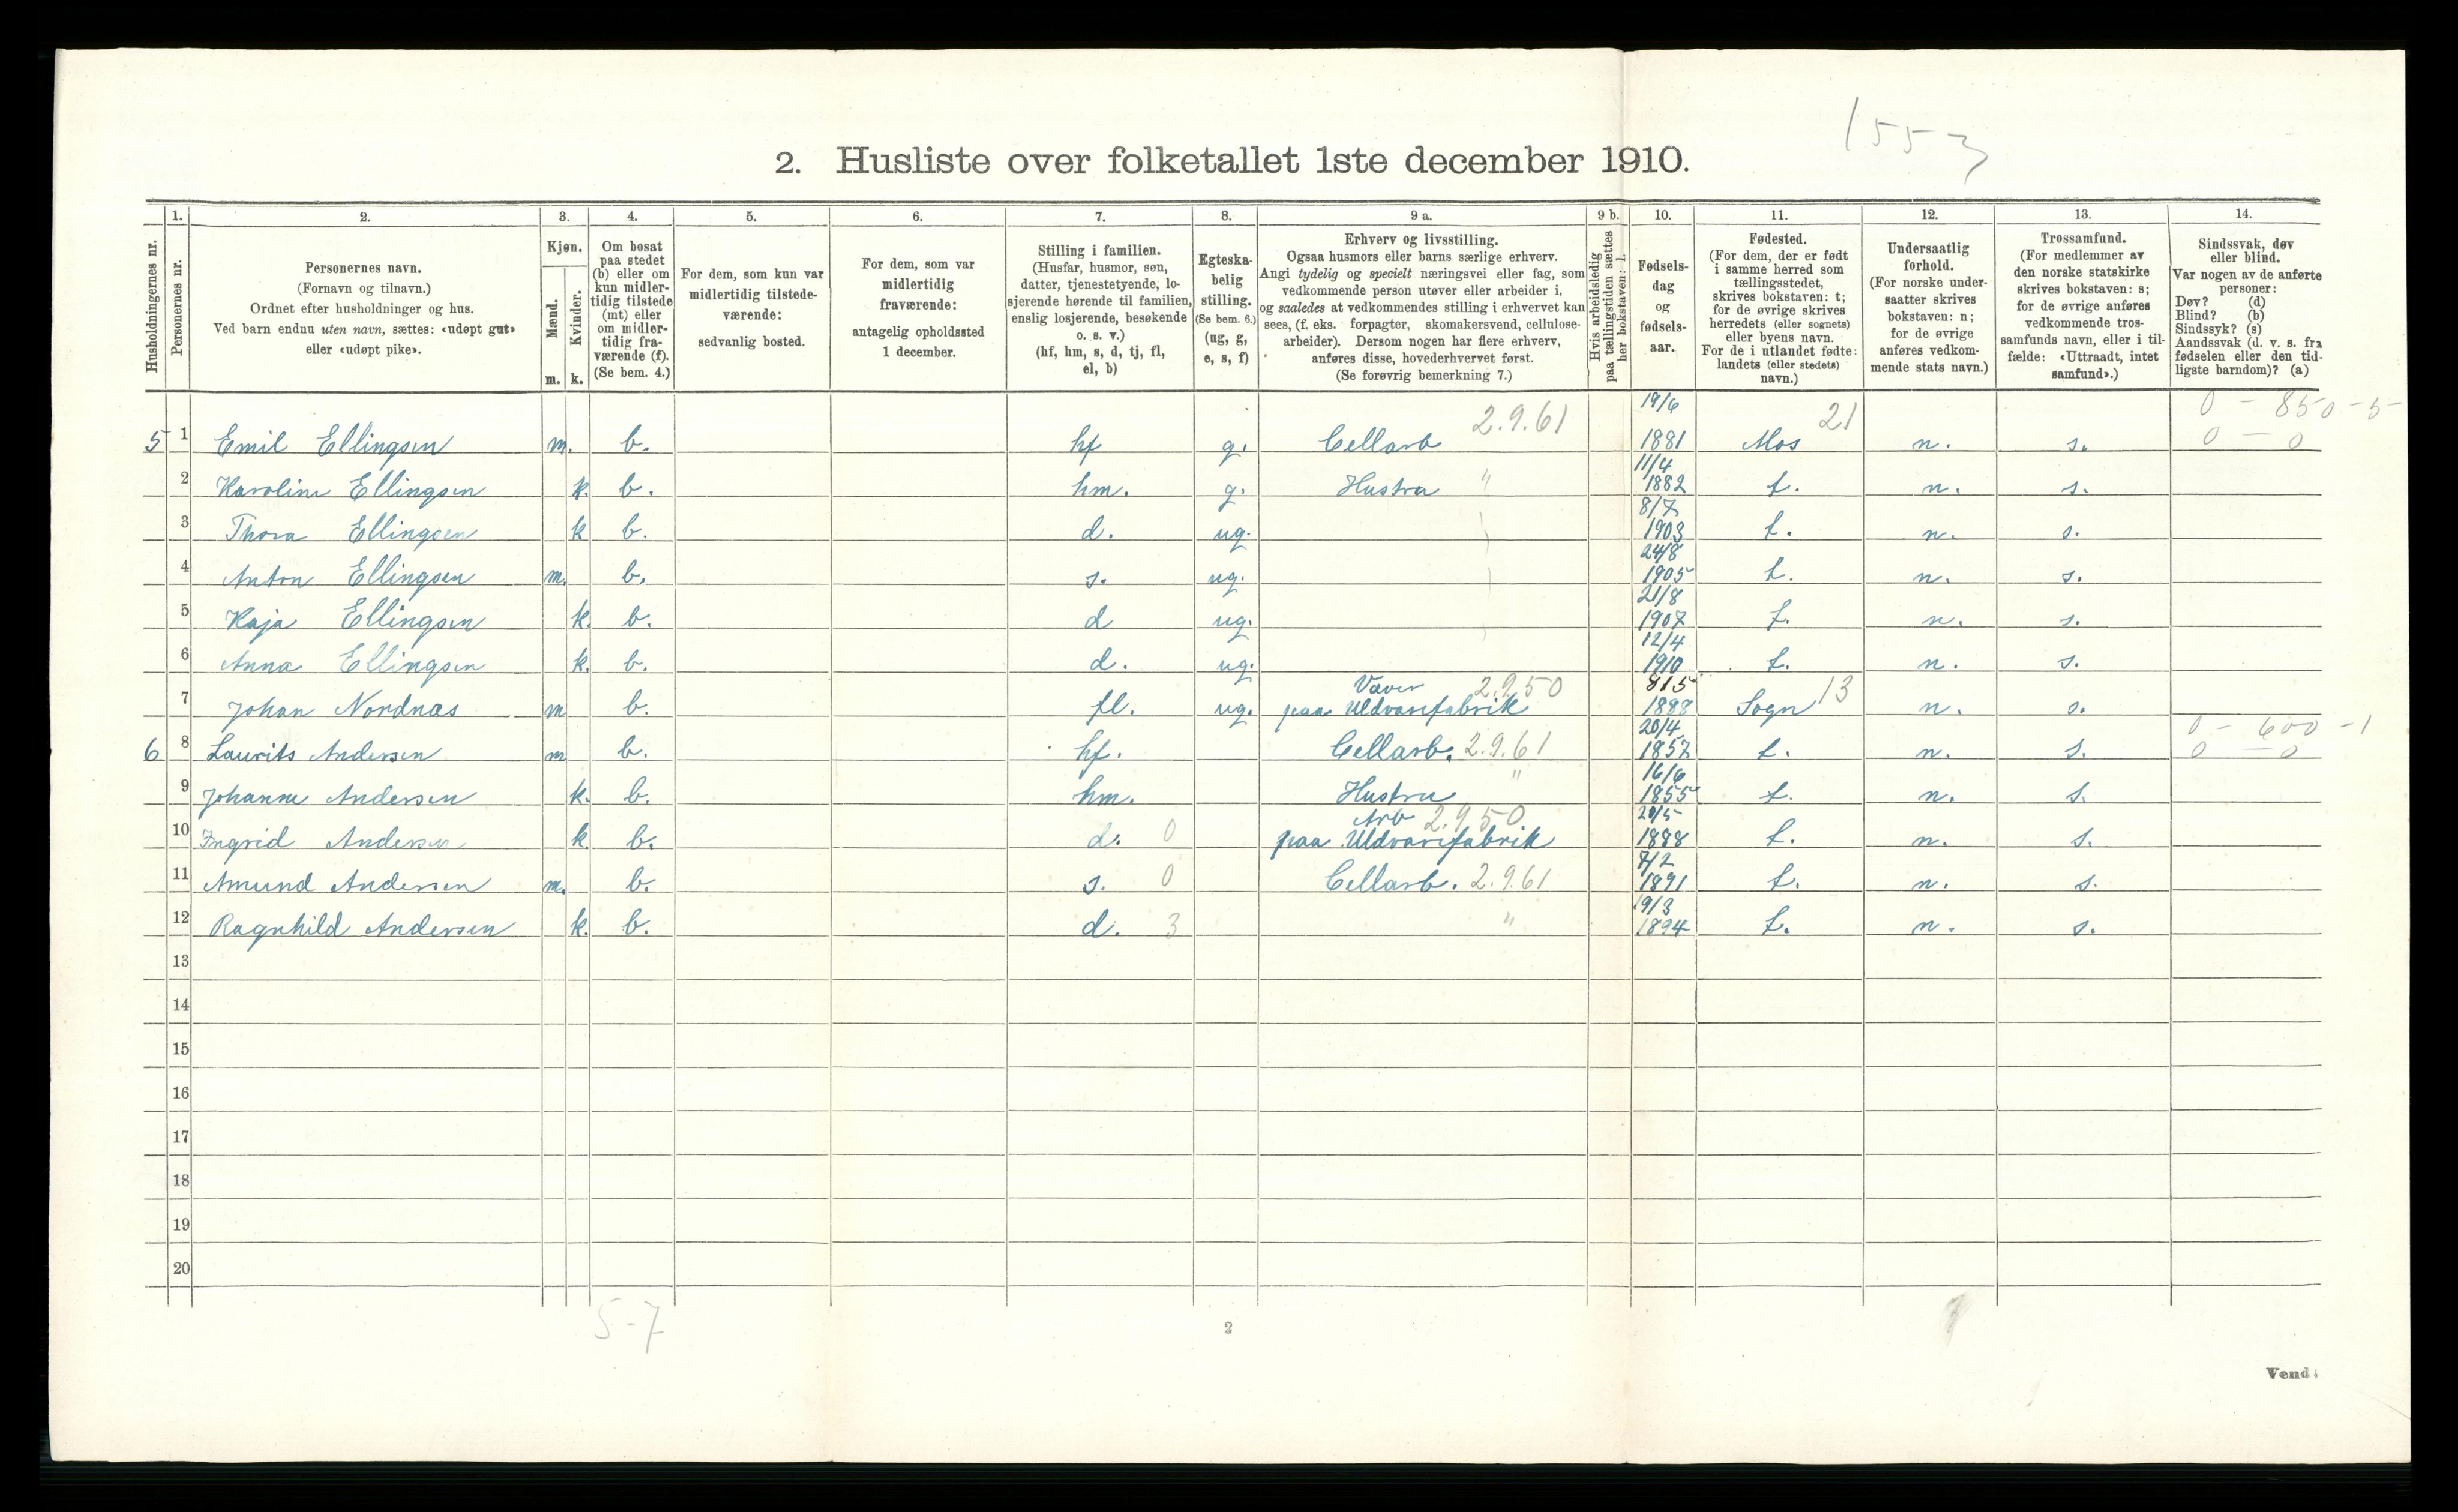 1553
2. Husliste over folketallet 1ste december 1910.
Husholdningernes nr.
1. Personernes nr.
2. Personernes navn. (Fornavn og tilnavn.) Ordnet efter husholdninger og hus. Ved barn endnu uten navn, sættes: «udøpt gut» eller «udøpt pike».
3. Kjøn. Mænd. m. Kvinder. k.
4. Om bosat paa stedet (b) eller om kun midlertidig tilstede (mt) eller om midlertidig fraværende (f). (Se bem. 4.)
5. For dem, som kun var midlertidig tilstedeværende: sedvanlig bosted.
6. For dem, som var midlertidig fraværende: antagelig opholdssted 1 december.
7. Stilling i familien. (Husfar, husmor, søn, datter, tjenestetyende, losjerende hørende til familien, enslig losjerende, besøkende o. s. v.) (hf, hm, s, d, tj, fl, el, b)
8. Egteskabelig stilling. (Se bem. 6.) (ug, g, e, s, f)
9 a. Erhverv og livsstilling. Ogsaa husmors eller barns særlige erhverv. Angi tydelig og specielt næringsvei eller fag, som vedkommende person utøver eller arbeider i, og saaledes at vedkommendes stilling i erhvervet kan sees, (f. eks. forpagter, skomakersvend, cellulosearbeider). Dersom nogen har flere erhverv, anføres disse, hovederhvervet først. (Se forøvrig bemerkning 7.)
9 b. Hvis arbeidsledig paa tællingstiden sættes her bokstaven: l.
10. Fødselsdag og fødselsaar.
11. Fødested. (For dem, der er født i samme herred som tællingsstedet, skrives bokstaven: t; for de øvrige skrives herredets (eller sognets) eller byens navn. For de i utlandet fødte: landets (eller stedets) navn.)
12. Undersaatlig forhold. (For norske undersaatter skrives bokstaven: n; for de øvrige anføres vedkommende stats navn.)
13. Trossamfund. (For medlemmer av den norske statskirke skrives bokstaven: s; for de øvrige anføres vedkommende trossamfunds navn, eller i tilfælde: «Uttraadt, intet samfund».)
14. Sindssvak, døv eller blind. Var nogen av de anførte personer: Døv? (d) Blind? (b) Sindssyk? (s) Aandssvak (d. v. s. fra fødselen eller den tidligste barndom)? (a)
5 1 Emil Ellingsen m. b. hf g. Cellarb 2.9.61 19/6 1881 Mos 21 n. s. 0 - 850 - 5 0 - 0
2 Karoline Ellingsen k. b. hm. g. Hustru " 11/4 1882 t. n. s.
3 Thora Ellingsen k b. d. ug. 8/7 1903 t. n. s.
4 Anton Ellingsen m. b. s. ug. 24/8 1905 t. n. s.
5 Kaja Ellingsen k. b. d ug. 21/8 1907 t. n. s.
6 Anna Ellingsen k. b. d. ug. 12/4 1910 t. n. s.
7 Johan Nordnas m b. fl. ug. Væver paa Uldvarefabrik 2.9.50 8/5 1888 Sogn 13 n. s.
6 8 Laurits Andersen m b. hf. Cellarb. 2.9.61 20/4 1857 t. n. s. 0 - 600 - 1 0 - 0
9 Johanne Andersen k. b. hm. Hustru " 16/6 1855 t. n. s.
10 Ingrid Andersen k. b. d. 0 Arb paa Uldvarefabrik 2.9.50 20/5 1888 t. n. s.
11 Amund Andersen m. b. s. 0 Cellarb. 2.9.61 7/2 1891 t. n. s.
12 Ragnhild Andersen k. b. d. 3 " 19/3 1894 t. n. s.
13
14
15
16
17
18
19
20
5-7
2
Vend!